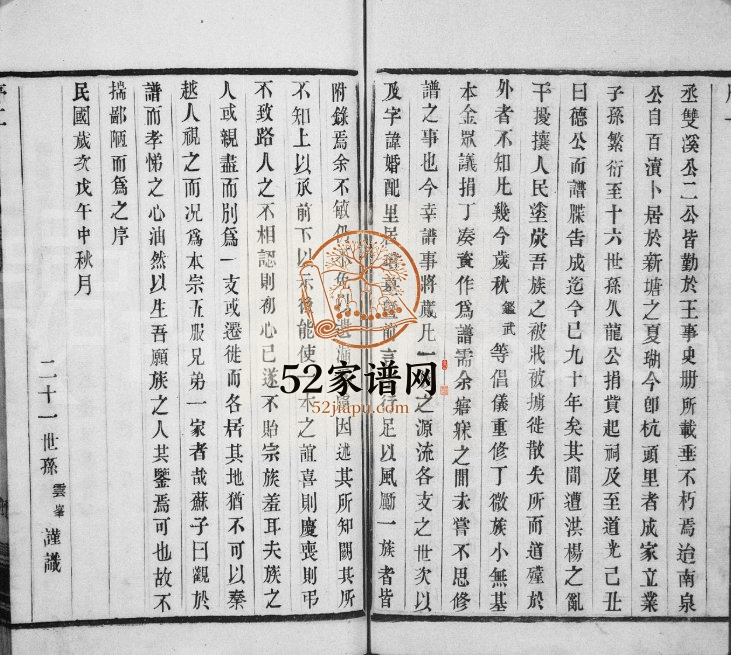 丞雙溪公二公皆勤於王事史册所載垂不朽焉迨南泉
公自百瀆卜居於新塘之夏瑚今卽杭頭里者成家立業
子孫繁衍至十六世孫久龍公捐貲起祠及至道光己丑
曰德公而譜牒告成迄今已九十年矣其間遭洪楊之亂
干擾攘人民塗炭吾族之被戕被擄徙散失所而道殣於
外者不知凡幾今歲秋鑑武等倡儀重修丁微族小無基
本金眾議捐丁凑資作爲譜需余寤寐之間未嘗不思修
譜之事也今幸譜事將蕆凡一之源流各支之世次以
及字諱婚配里居前言行足以風勵一族者皆
附錄焉余不敏因述其所知闕其所
不知上以承前下以示後能使本之誼喜則慶喪則弔
不致路人之不相認則初心已遂不貽宗族羞耳夫族之
人或親盡而別爲一支或遷徙而各居其地猶不可以秦
越人視之而况爲本宗五服兄弟一家者哉蘇子曰觀於
譜而孝悌之心油然以生吾願族之人其鑒焉可也故不
揣鄙陋而爲之序
民國歲次戊午中秋月
二十一世孫雲峯謹識
52家谱网
52jiapu.com